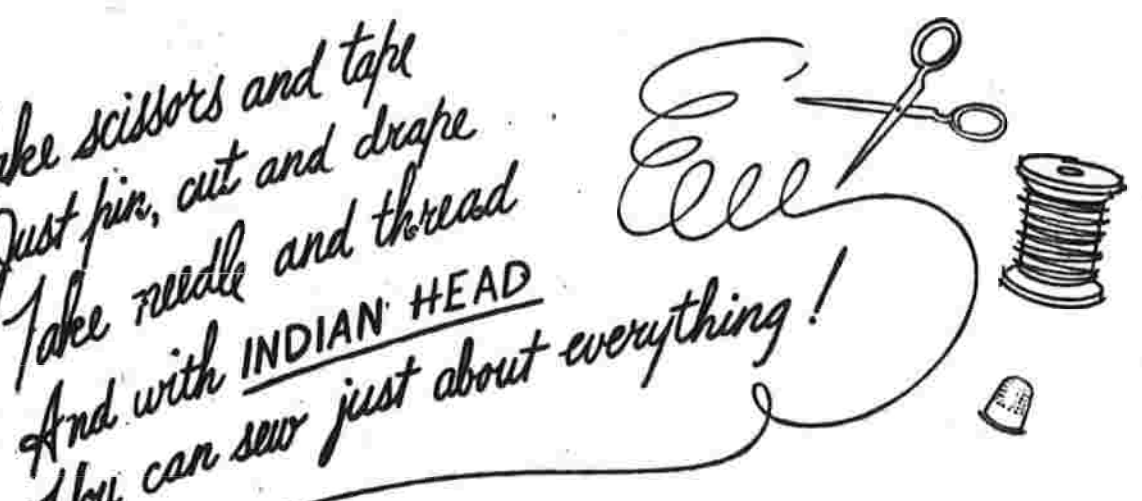 Take scissors and tape
Just pin, cut and drape
Take needle and thread
And with INDIAN HEAD
You can sew just about everything!